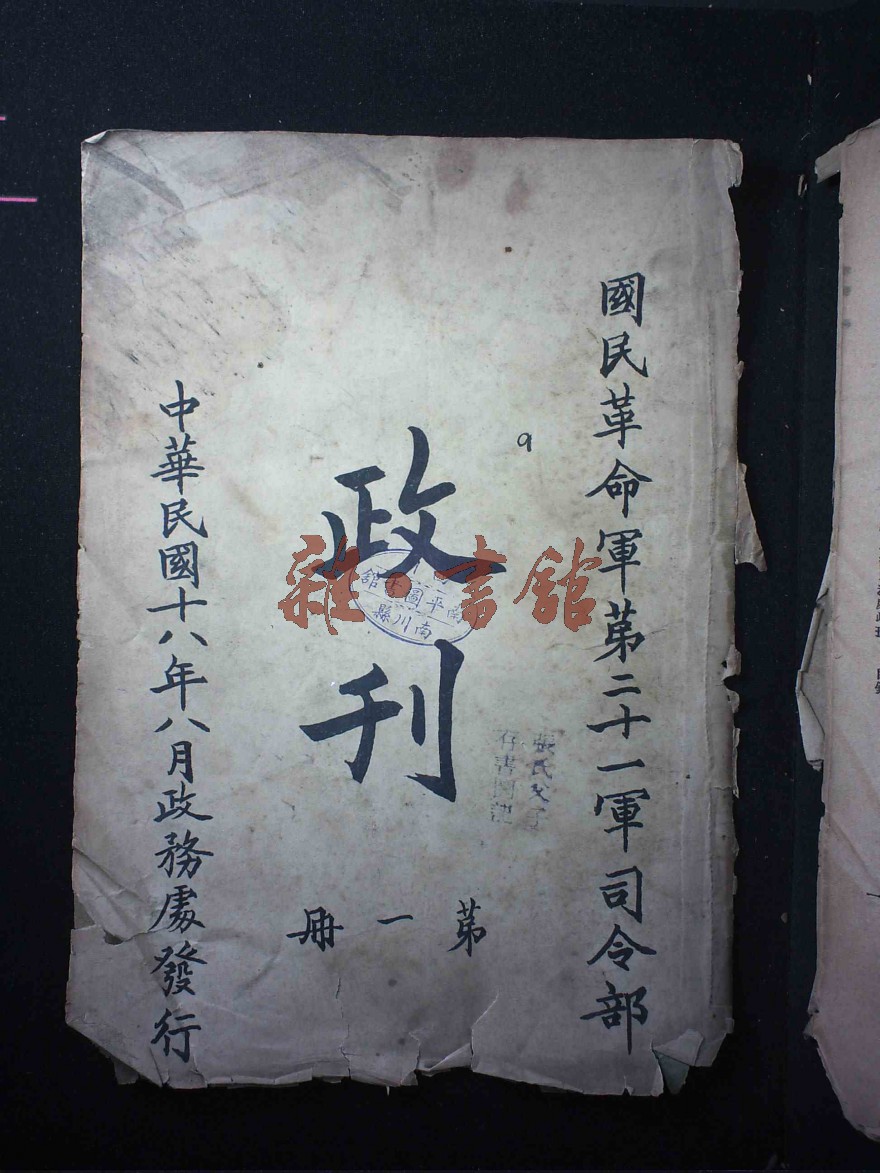 國民革命軍第二十一軍司令部
9
政刊
第一册
中華民國十八年八月政務處發行
雜·書館
館 圖平
南川縣
張氏父子
存書圖記